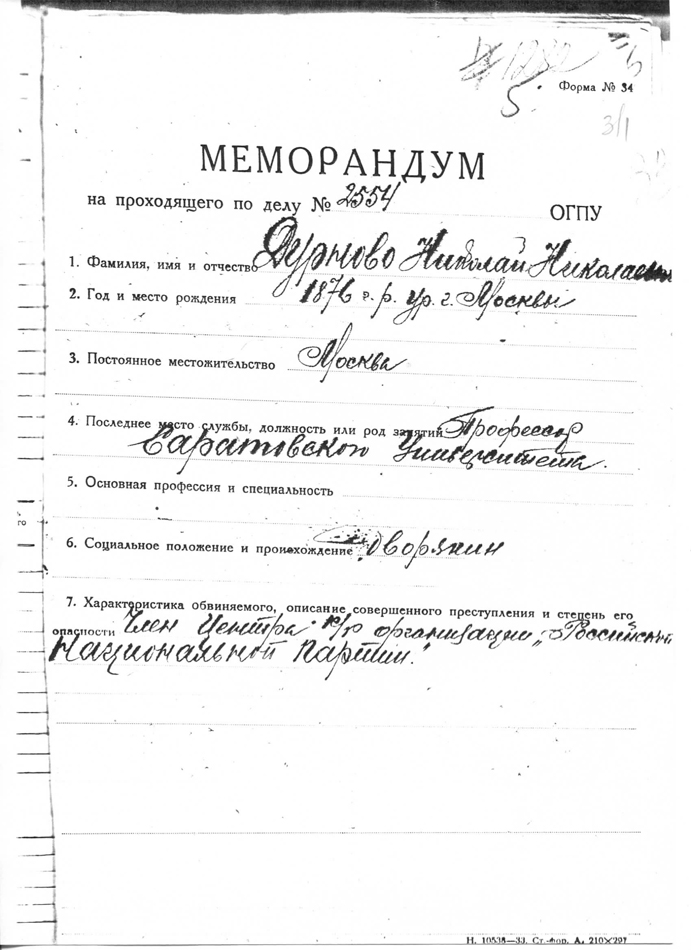 5.
Форма № 34
3/1
МЕМОРАНДУМ
на проходящего по делу № 2554 ОГПУ
1. Фамилия, имя и отчество Дурново Николай Николаевич
2. Год и место рождения 1876 г. р. ур. г. Москвы
3. Постоянное местожительство Москва
4. Последнее место службы, должность или род занятий Профессор
Саратовского Университета.
5. Основная профессия и специальность
го
6. Социальное положение и происхождение Дворянин
7. Характеристика обвиняемого, описание совершенного преступления и степень его
опасности Член Центра к/р организации „Российской
Национальной Партии."
Н. 10538—33. Ст.-фор. А₄ 210×297